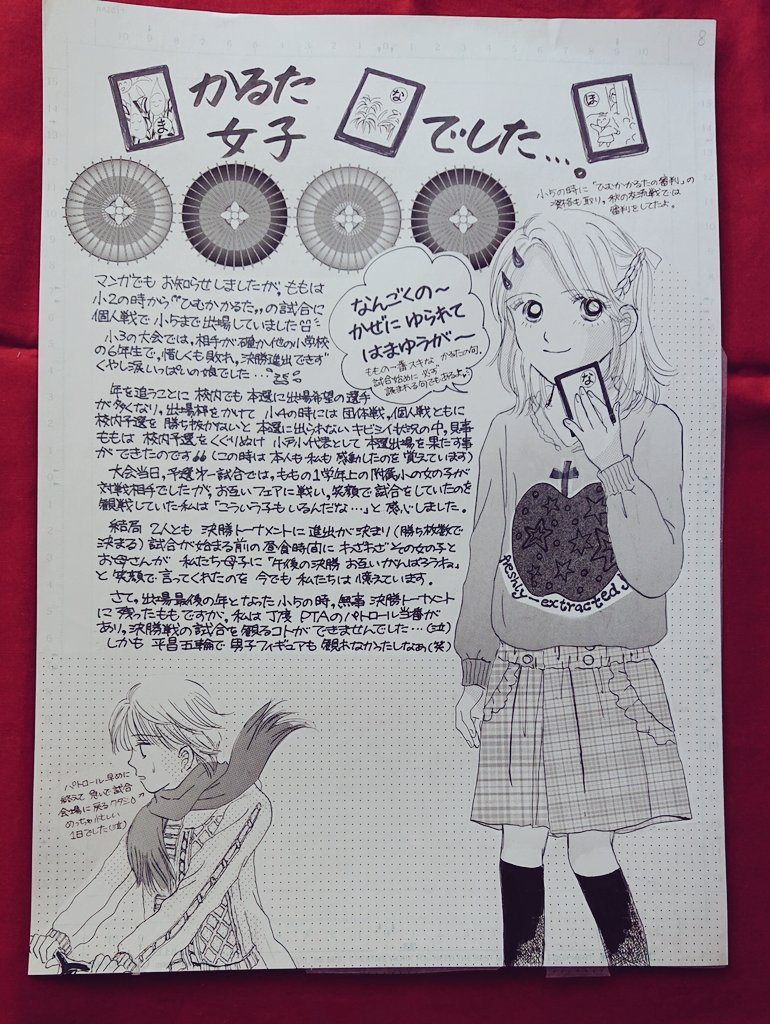 8
かるた
女子
でした…。
ま
な
ほ
小5の時に"ひむかかるたの審判"の
資格も取り、秋の交流戦では
審判をしてたよ。
マンガでも お知らせしましたが、ももは
小2の時から"ひむかかるた"の試合に
個人戦で 小5まで出場していました
小3の大会では、相手が確か他の小学校
の6年生で、惜しくも敗れ、決勝進出できず
くやし涙いっぱいの娘でした…
なんごくの〜
かぜに ゆられて
はまゆうが〜
ももの一番スキな かるたの句。
試合始めに 必ず
読まれる句でもあるよ。
年を追うごとに 校内でも 本選に出場希望の選手
が多くなり。出場枠をかけて 小4の時には 団体戦。個人戦ともに
校内予選を 勝ち抜かないと 本選に出られない キビシイ状況の中、見事
ももは 校内予選をくぐりぬけ 小戸小代表として 本選出場を 果たす事
ができたのです (この時は 本人も私も 感動したのを 覚えています)
大会当日、予選第一試合では、ももの1学年上の 附属小の女の子が
対戦相手でしたが、お互いフェアに戦い、笑顔で試合をしていたのを
観戦していた私は「こういう子もいるんだな…」と 感心しました。
結局 2人とも 決勝トーナメントに 進出が決まり(勝ち枚数で
決まる)試合が始まる前の 昼食時間に わざわざ その女の子と
お母さんが 私たち母子に「午後の決勝 お互いがんばろうね」
と 笑顔で 言ってくれたのを 今でも 私たちは 憶えています。
さて、出場最後の年となった 小5の時、無事 決勝トーナメント
に 残ったももですが、私は 丁度 PTAのパトロール当番が
あり、決勝戦の試合を 観るコトが できませんでした…(泣)
しかも 平昌五輪で 男子フィギュアも 観れなかったしなぁ(笑)
な
freshly-extracted j
パトロール早めに
終えて 急いで試合
会場に戻るワタシ
めっちゃ忙しい
1日でした(泣)